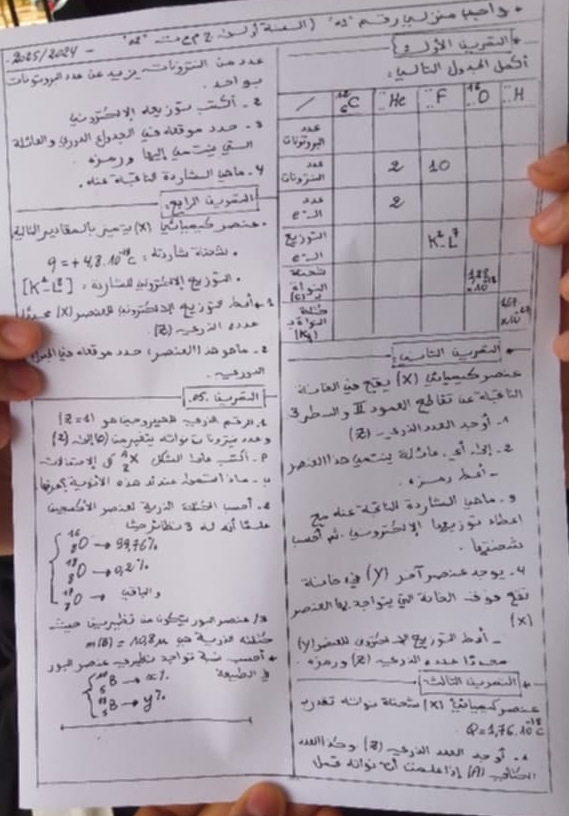 واجب منزلي رقم "02" (السنة أولى ج م ع ت "02"
- 2025/2024 -
* التمرين الأول:
أكمل الجدول التالي:
/ ¹²₆C ..He ..F ¹⁶..O ..H
عدد البروتونات
عدد النترونات 2 10
عدد الـ e⁻ 2
التوزيع الـ e⁻ K²-L⁷
شحنة النواة بـ (C) 1,28 ×10
كتلة النواة بـ (Kg) 1,67 ×10⁻²⁷
* التمرين الثاني:
عنصر كيميائي (X) يقع في الخانة
الناتجة عن تقاطع العمود II والسطر 3
1. أوجد العدد الذري (Z)
2. إلى أي عائلة ينتمي هذا العنصر
- أعط رمزه.
3. ماهي الشاردة الناتجة عنه مع
اعطاء توزيعها الإلكتروني. ثم أحسب
شحنتها.
4. يوجد عنصر آخر (Y) في خانة
تقع فوق الخانة التي يتواجد بها العنصر
(X)
- أعط التوزيع الإلكتروني للعنصر (Y)
محددا عدده الذري (Z) ورمزه.
* التمرين الثالث:
عنصر كيميائي (X) شحنة نواته تقدر بـ
Q=1,76.10⁻¹⁸C
1. أوجد العدد الذري (Z) وكذا العدد
الكتلي (A) إذا علمت أن نواته تحمل
عدد من النترونات يزيد عن عدد البروتونات
بواحد.
2. أكتب توزيعه الإلكتروني
3. حدد موقعه في الجدول الدوري والعائلة
التي ينتمي إليها ورمزه.
4. ماهي الشاردة الناتجة عنه.
التمرين الرابع:
عنصر كيميائي (X) يتميز بالمقادير التالية
. شحنة شاردته: q=+4,8.10⁻¹⁹C
. التوزيع الإلكتروني للشاردة: [K²-L⁸]
1. أعط التوزيع الإلكتروني للعنصر (X) محددا
عدده الذري (Z)
2. ماهو هذا العنصر، حدد موقعه في الجدول
الدوري.
التمرين 05:
1. الرقم الذري للهيدروجين هو (Z=1)
وعدد نترونات نواته يتغير من (0) إلى (2)
أ. أكتب على الشكل ᴬ_ZX كل الاحتمالات
ب. ماذا
2. أحسب الكتلة الذرية لعنصر الأكسجين
علما أنه له 3 نظائر حيث
¹⁶₈O → 99,76%
¹⁸₈O → 0,2%
₈O → والباقي
3/ عنصر البور يتكون من نظيرين حيث
كتلته الذرية هي m(B) = 10,8u
* أحسب نسبة تواجد نظيري عنصر البور
في الطبيعة
₅B → x%
₅B → y%